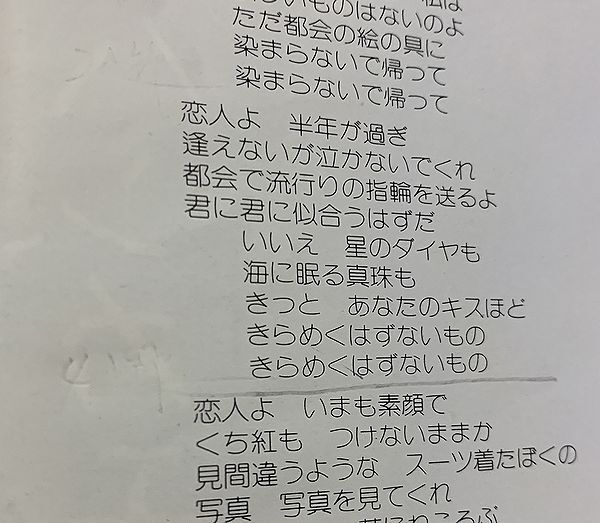 いものはないのよ
ただ都会の絵の具に
染まらないで帰って
染まらないで帰って
恋人よ 半年が過ぎ
逢えないが泣かないでくれ
都会で流行りの指輪を送るよ
君に君に似合うはずだ
いいえ 星のダイヤも
海に眠る真珠も
きっと あなたのキスほど
きらめくはずないもの
きらめくはずないもの
恋人よ いまも素顔で
くち紅も つけないままか
見間違うような スーツ着たぼくの
写真 写真を見てくれ